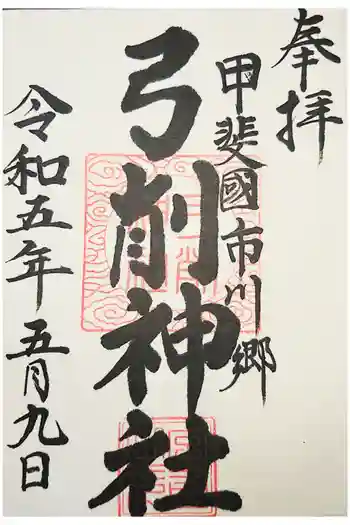 奉拝
甲斐國市川郷
弓削神社
令和五年五月九日